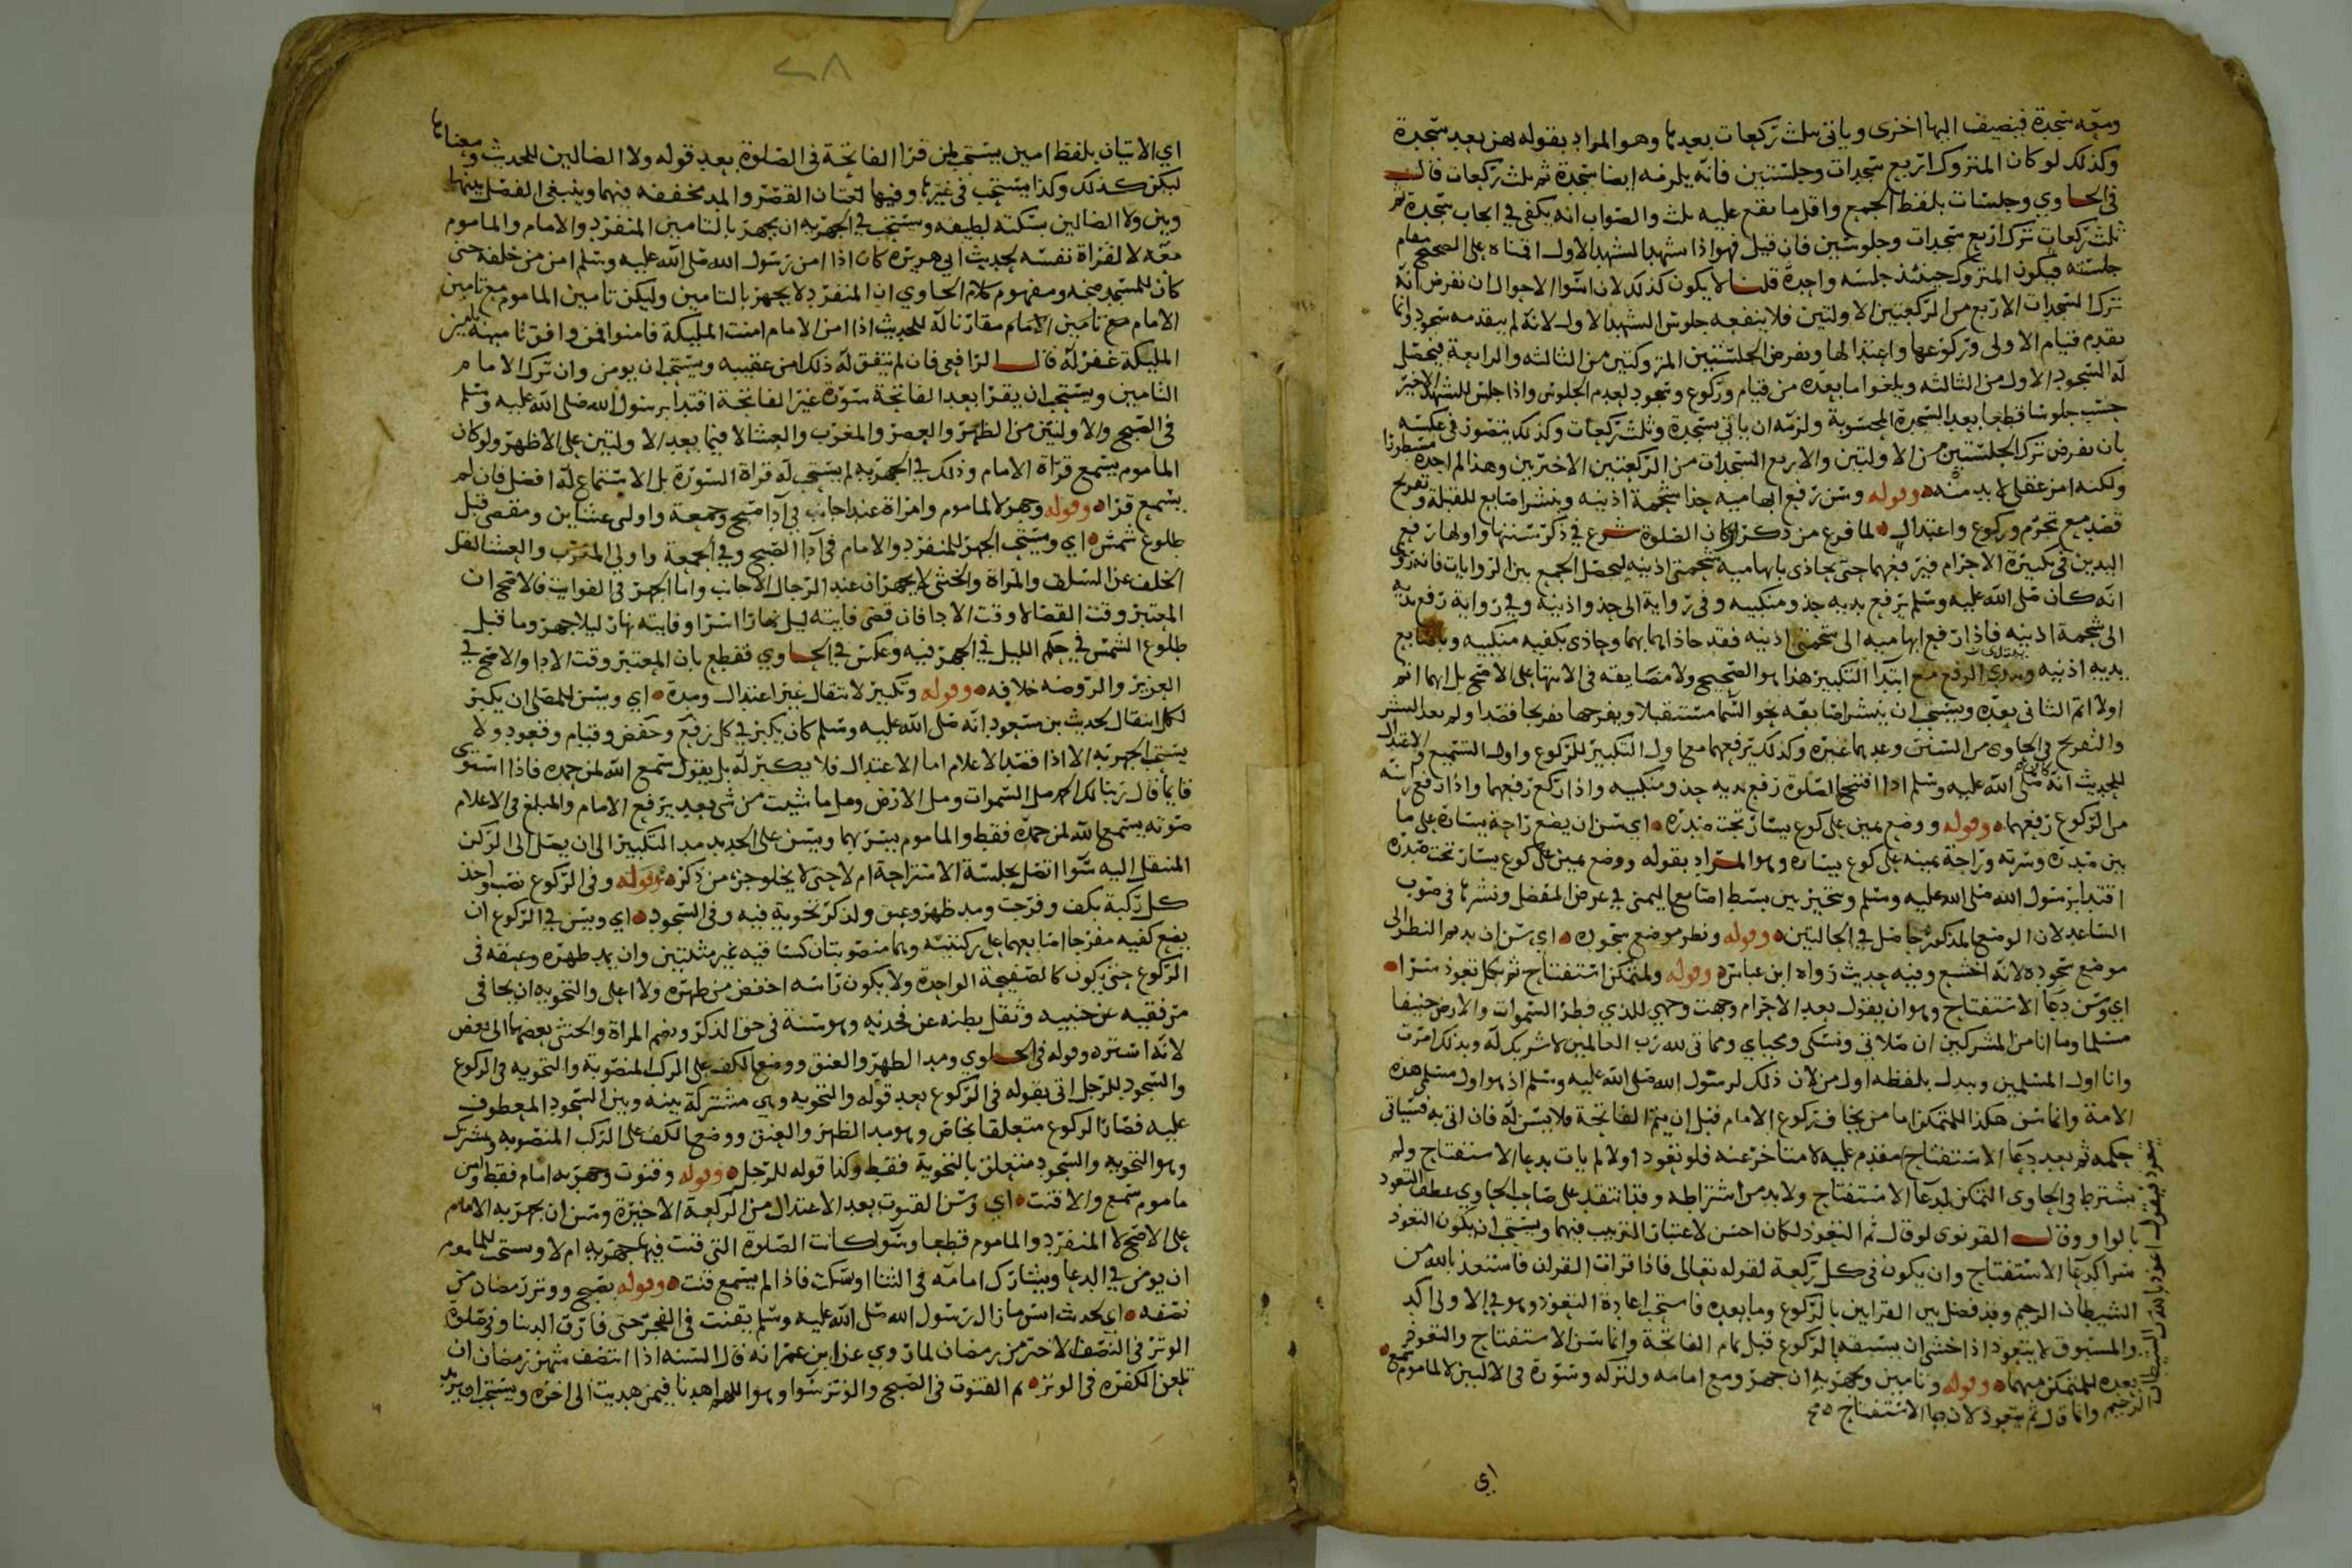 ومعه سجدة فيضيف اليها اخرى وياتى بثلث ركعات بعدها وهو المراد بقوله هن بعد سجدة
وكذلك لو كان المتروك اربع سجدات وجلستين فانه يلزمه ايضا سجدة ثم ثلث ركعات قال
في الحاوي وجلسات بلفظ الجمع واقل ما يقع عليه ثلث والصواب انه يكفي في ايجاب سجدة ثم
ثلث ركعات ترك اربع سجدات وجلوسين فان قيل فهو اذا تشهد التشهد الاول اقمناه على الصحيح مقام
جلسته فيكون المتروك حينئذ جلسه واحدة قلنا لا يكون كذلك لان اسوا الاحوال ان نفرض انه
ترك السجدات الاربع من الركعتين الاولتين فلا ينفعه جلوس التشهد الاول لانه لم يتقدمه سجود وانما
تقدم قيام الاولى وركوعها واعتدالها ونفرض الجلستين المتروكتين من الثالثه والرابعة فيحصل
له السجود الاول من الثالثه ويلغوا ما بعده من قيام وركوع وسجود لعدم الجلوس واذا جلس للتشهد الاخير
حسب جلوسا قطعا بعد السجدة المحسوبة ولزمه ان ياتي بسجدة وثلث ركعات وكذلك يتصور في عكسه
بان نفرض ترك الجلستين من الاولتين والاربع السجدات من الركعتين الاخيرتين وهذا لم اجده مسطورا
ولكنه امر عقلي لا بد منه وقوله وسن رفع ابهاميه حذا شحمة اذنيه وبنشر اصابع للقبلة وتفريج
قصد مع تحرم وركوع واعتدال لما فرغ من ذكر اركان الصلوة شرع في ذكر سننها واولها رفع
اليدين في تكبيرة الاحرام فيرفعهما حتى يحاذى بابهاميه شحمتي اذنيه ليحصل الجمع بين الروايات فانه روى
انه كان صلى الله عليه وسلم يرفع يديه حذو منكبيه وفي رواية الى حذو اذنيه وفي رواية رفع يديه
الى شحمة اذنيه فاذا رفع ابهاميه الى شحمتي اذنيه فقد حاذاهما بهما وحاذى بكفيه منكبيه وباصابع
يديه اذنيه الرفع مع ابتدا التكبير هذا هو الصحيح ولا مضايقه في الانتها على الاصح بل ايهما اتم
اولا اتم الثانى بعده ويستحب ان ينشر اصابعه نحو السما مستقبلا ويفرجها تفريجا قصدا ولم يعد النشر
والتفريج في الحاوى من السنن وعدهما غيره وكذلك يرفعهما مع اول التكبير للركوع واول التسميع في الاعتدال
للحديث انه صلى الله عليه وسلم كان اذا افتتح الصلوة رفع يديه حذو منكبيه واذا ركع رفعهما واذا رفع راسه
من الركوع رفعهما وقوله ووضع يمين على كوع يسار تحت صدره اي سن ان يضع راحة يساره على ما
بين صدره وسرته وراحة يمينه على كوع يساره وهو المراد بقوله ووضع يمين على كوع يسار تحت صدره
اقتدا برسول الله صلى الله عليه وسلم ويتخير بين بسط اصابع اليمنى في عرض المفصل ونشرها في صوب
الساعد لان الوضع المذكور حاصل في الحالتين وقوله ونظر موضع سجوده اي سن ان يديم النظر الى
موضع سجوده لانه اخشع وفيه حديث رواه ابن عباس وقوله ولمتمكن استفتاح ثم لكل تعوذ سرا
اي وسن دعا الاستفتاح وهو ان يقول بعد الاحرام وجهت وجهي للذي فطر السموات والارض حنيفا
مسلما وما انا من المشركين ان صلاتي ونسكى ومحياي ومماتى لله رب العالمين لا شريك له وبذلك امرت
وانا اول المسلمين ويبدل بلفظه اول من لان ذلك لرسول الله صلى الله عليه وسلم اذ هو اول مسلمى هذه
الامة وانما سن هكذا للمتمكن اما من يخاف ركوع الامام قبل ان يتم الفاتحة فلا يسن له فان اتى به فسياتى
حكمه ثم بعد دعا الاستفتاح مقدم عليه لا متاخر عنه فلو تعوذ اولا لم يات بدعا الاستفتاح ولم
يشترط في الحاوى التمكن لدعا الاستفتاح ولا بد من اشتراطه وقد انتقد على صاحب الحاوي عطف التعوذ
بالواو وقال القونوى لو قال ثم التعوذ لكان احسن لاعتبار الترتيب فيهما ويستحب ان يكون التعوذ
سرا كدعا الاستفتاح وان يكون في كل ركعة لقوله تعالى فاذا قرات القران فاستعذ بالله من
الشيطان الرجيم وقد فصل بين القراتين بالركوع وما بعده فاستحب اعادة التعوذ وهو في الاولى اكد
والمسبوق لا يتعوذ اذا خشى ان يسبقه بالركوع قبل تمام الفاتحة وانما سن الاستفتاح والتعوذ
بعده للمتمكن منهما وقوله وتامين وجهر به ان جهر ومع امامه ولتركه وسورة في الاوليين لا لماموم سمع
الرجيم وانما قال ثم يتعوذ لان دعا الاستفتاح
يتعوذ فيقول اعوذ بالله من الشيطان
اي
٢٨
اي الاتيان بلفظ امين يستحب لمن قرا الفاتحة في الصلوة بعد قوله ولا الضالين للحديث ومعناها
ليكن كذلك وكذا يستحب في غيرها وفيها لغتان القصر والمد مخففه فيهما وينبغي الفصل بينها
وبين ولا الضالين بسكتة لطيفه ويستحب في الجهريه ان يجهر بالتامين المنفرد والامام والماموم
معه لا لقراة نفسه لحديث ابي هريره كان اذا امن رسول الله صلى الله عليه وسلم امن من خلفه حتى
كان للمسجد ضجه ومفهوم كلام الحاوي ان المنفرد لا يجهر بالتامين وليكن تامين الماموم مع تامين
الامام مع تامين الامام مقارنا له للحديث اذا امن الامام امنت المليكة فامنوا فمن وافق تامينه تامين
المليكة غفر له قال الرافعي فان لم يتفق له ذلك امن عقيبه ويستحب ان يومن وان ترك الامام
التامين ويستحب ان يقرا بعد الفاتحة سورة غير الفاتحة اقتدا برسول الله صلى الله عليه وسلم
في الصبح والاولتين من الظهر والعصر والمغرب والعشا لا فيما بعد الاولتين على الاظهر ولو كان
الماموم يسمع قراة الامام وذلك في الجهريه لم يستحب له قراة السورة بل الاستماع له افضل فان لم
يسمع قرا وقوله وجهر لا لماموم وامراة عند اجانب في ادا صبح وجمعة واولى عشاين ومقضى قبل
طلوع شمس اي ويستحب الجهر للمنفرد والامام في ادا الصبح وفي الجمعة واولي المغرب والعشا لنقل
الخلف عن السلف والمراة والخنثى لا يجهران عند الرجال الاجانب واما الجهر في الفوايت فالاصح ان
المعتبر وقت القضا لا وقت الادا فان قضى فايتة ليل نهارا اسر او فايتة نهار ليلا جهر وما قبل
طلوع الشمس في حكم الليل في الجهر فيه وعكس في الحاوي فقطع بان المعتبر وقت الادا والاصح في
العزيز والروضه خلافه وقوله وتكبير لانتقال غير اعتدال ومده اي ويسن للمصلى ان يكبر
لكل انتقال لحديث بن مسعود انه صلى الله عليه وسلم كان يكبر في كل رفع وخفض وقيام وقعود ولا
يستحب الجهر به الا اذا قصد الاعلام اما الاعتدال فلا يكبر له بل يقول سمع الله لمن حمده فاذا استوى
قايما قال ربنا لك الحمد مل السموات ومل الارض ومل ما شيت من شى بعد يرفع الامام والمبلغ في الاعلام
صوته بسمع الله لمن حمده فقط والماموم يسر بهما ويسن على الجديد مد التكبير الى ان يصل الى الركن
المنتقل اليه سوا اتصل بجلسة الاستراحة ام لا حتى لا يخلو جزء من ذكر وقوله وفي الركوع نصب واخذ
كل ركبة بكف وفرجت ومد ظهر وعنق ولذكر تخوية فيه وفي السجود اي ويسن في الركوع ان
يضع كفيه مفرجا اصابعهما على ركبتيه وهما منصوبتان كسا فيه غير مثنيتين وان يمد ظهره وعنقه في
الركوع حتى يكون كالصفيحة الواحدة ولا يكون راسه اخفض من ظهره ولا اعلى والتخويه ان يجافى
مرفقيه عن جنبيه وتقل بطنه عن فخذيه وهو سنة في حق الذكر وتضم المراة والخنثى بعضهما الى بعض
لانه استر وقوله في الحاوي ومد الظهر والعنق ووضع الكف على الركب المنصوبة والتخويه في الركوع
والسجود للرجل اتى بقوله في الركوع بعد قوله والتخويه وهي مشتركة بينه وبين السجود المعطوف
عليه فصار الركوع متعلقا بخاص وهو مد الظهر والعنق ووضع الكف على الركب المنصوبه وبمشترك
وهو التخويه والسجود متعلق بالتخوية فقط وكذا قوله للرجل وقوله وقنوت وجهر به امام فقط وامن
ماموم سمع والا قنت اي وسن القنوت بعد الاعتدال من الركعة الاخيرة وسن ان يجهر به الامام
على الاصح لا المنفرد والماموم قطعا وسوا كانت الصلوة التى قنت فيها جهريه ام لا ويستحب للماموم
ان يومن في الدعا ويشارك امامه في الثنا او يسكت فاذا لم يسمع قنت وقوله بصبح ووتر رمضان من
نصفه اي لحديث انس ما زال رسول الله صلى الله عليه وسلم يقنت في الفجر حتى فارق الدنيا وفي صلوة
الوتر في النصف الاخير من رمضان لما روي عن ابن عمر انه قال السنه اذا انتصف شهر رمضان ان
تلعن الكفرة في الوتر ثم القنوت في الصبح والوتر سوا وهو اللهم اهدنا فيمن هديت الى اخره ويستحب ان يزيد